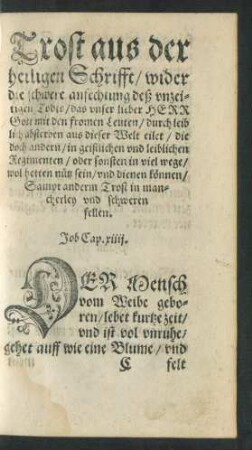 Trost aus der
heiligen Schrifft/ wider
die schwere anfechung deß vnzei-
tigen Todts/ das vnser lieber HERR
Gott mit den fromen Leuten/ durch leib
lich absterben aus dieser Welt eilet/ die
doch andern/ in geistlichen vnd leiblichen
Regimenten/ oder sonsten in viel wege/
wol hetten nütz sein/ vnd dienen können/
Sampt anderm Trost in man-
cherley vnd schweren
fellen.
Job Cap. xiiij.
DER Mensch
vom Weibe gebo-
ren/ lebet kurtze zeit/
vnd ist vol vnruhe/
gehet auff wie eine Blume/ vnd
C felt